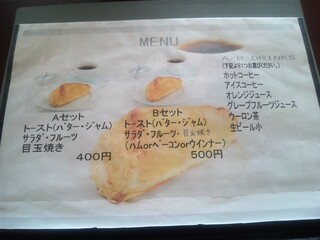 MENU
A/B DRINKS
(下記より1つお選びください。)
ホットコーヒー
アイスコーヒー
オレンジジュース
グレープフルーツジュース
ウーロン茶
生ビール小
Aセット
トースト(バター・ジャム)
サラダ・フルーツ
目玉焼き
400円
Bセット
トースト(バター・ジャム)
サラダ・フルーツ・目玉焼き
(ハムorベーコンorウインナー)
500円